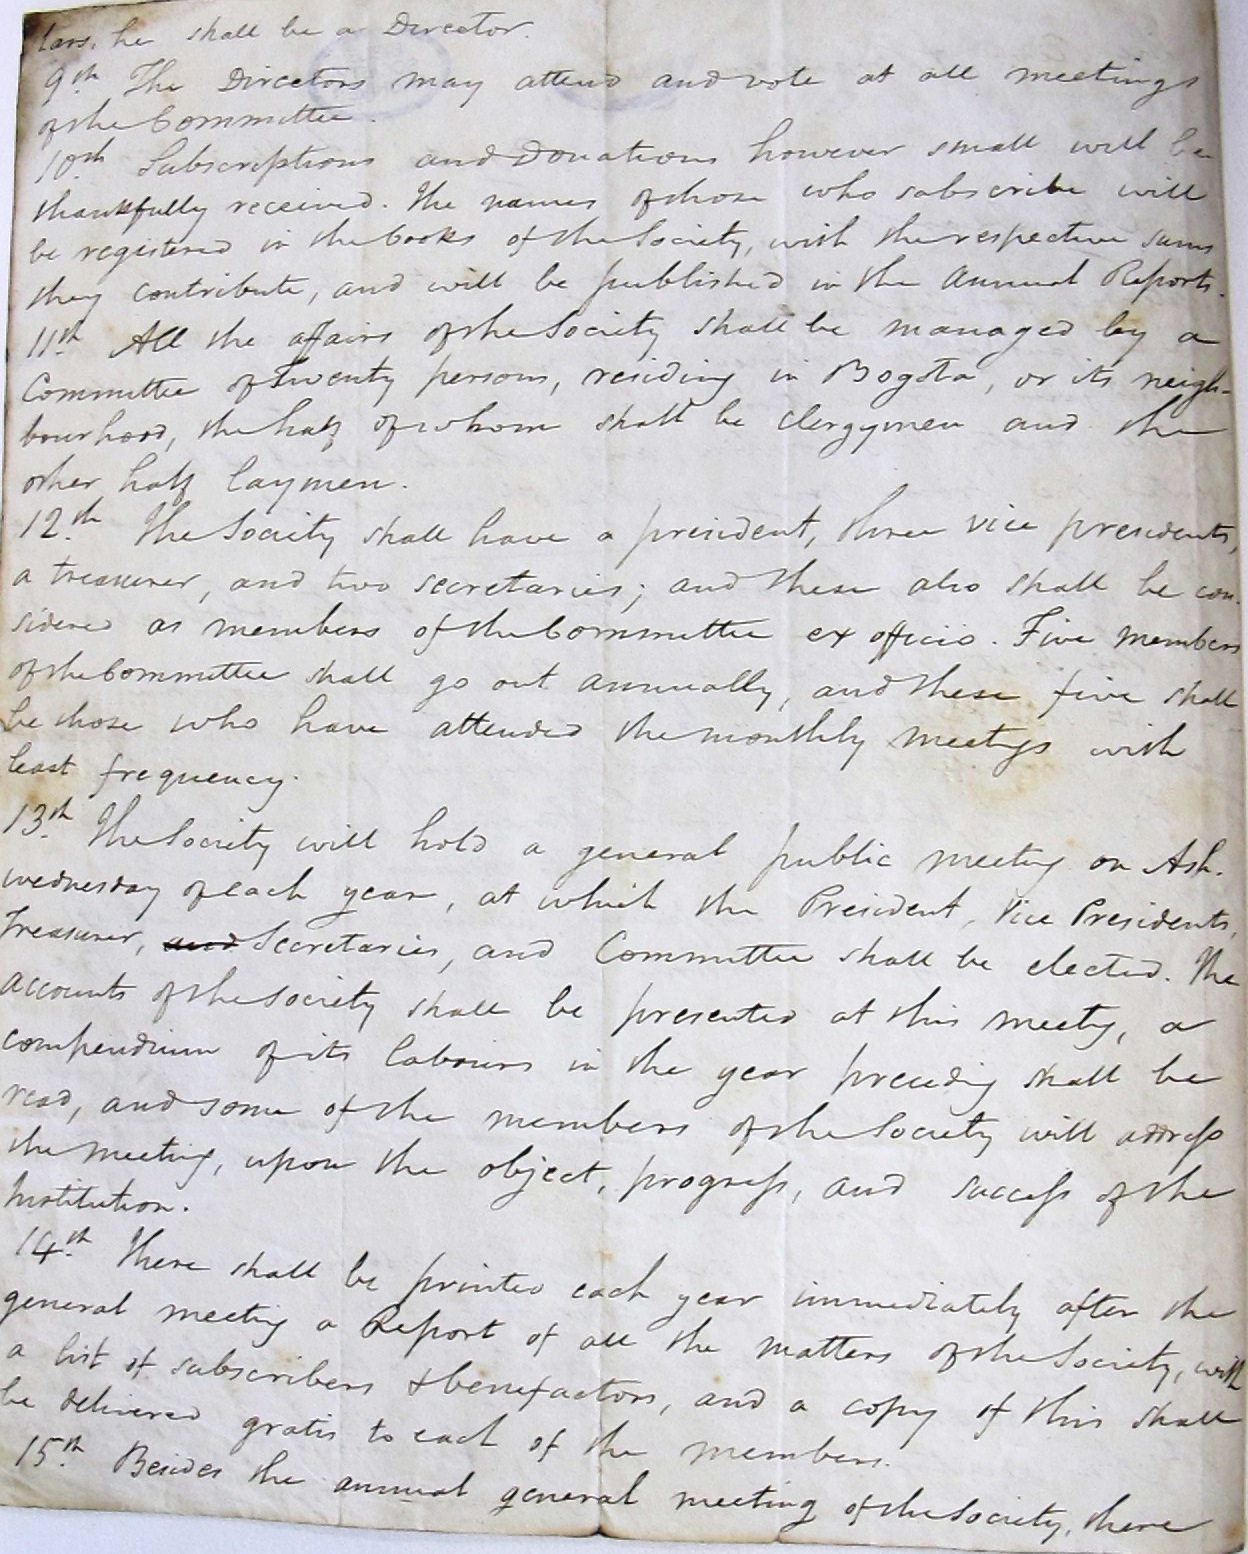 lars, he shall be a Director.
9th. The Directors may attend and vote at all meetings
of the Committee.
10th. Subscriptions and Donations however small will be
thankfully received. The names of those who subscribe will
be registered in the books of the Society, with the respective sums
they contribute, and will be published in the Annual Reports.
11th. All the affairs of the Society shall be managed by a
Committee of twenty persons, residing in Bogota, or its neigh-
bourhood, the half of whom shall be clergymen and the
other half laymen.
12th. The Society shall have a president, three vice presidents,
a treasurer, and two secretaries; and these also shall be con-
sidered as members of the Committee ex officio. Five members
of the Committee shall go out annually, and these five shall
be those who have attended the monthly meetings with
least frequency.
13th. The Society will hold a general public meeting on Ash-
wednesday of each year, at which the President, Vice Presidents,
Treasurer, and Secretaries, and Committee shall be elected. The
accounts of the Society shall be presented at this meeting, a
compendium of its labours in the year preceding shall be
read, and some of the members of the Society will address
the meeting, upon the object, progress, and success of the
Institution.
14th. There shall be printed each year immediately after the
general meeting a Report of all the matters of the Society, with
a list of subscribers & benefactors, and a copy of this shall
be delivered gratis to each of the members.
15th. Besides the annual general meeting of the Society, there